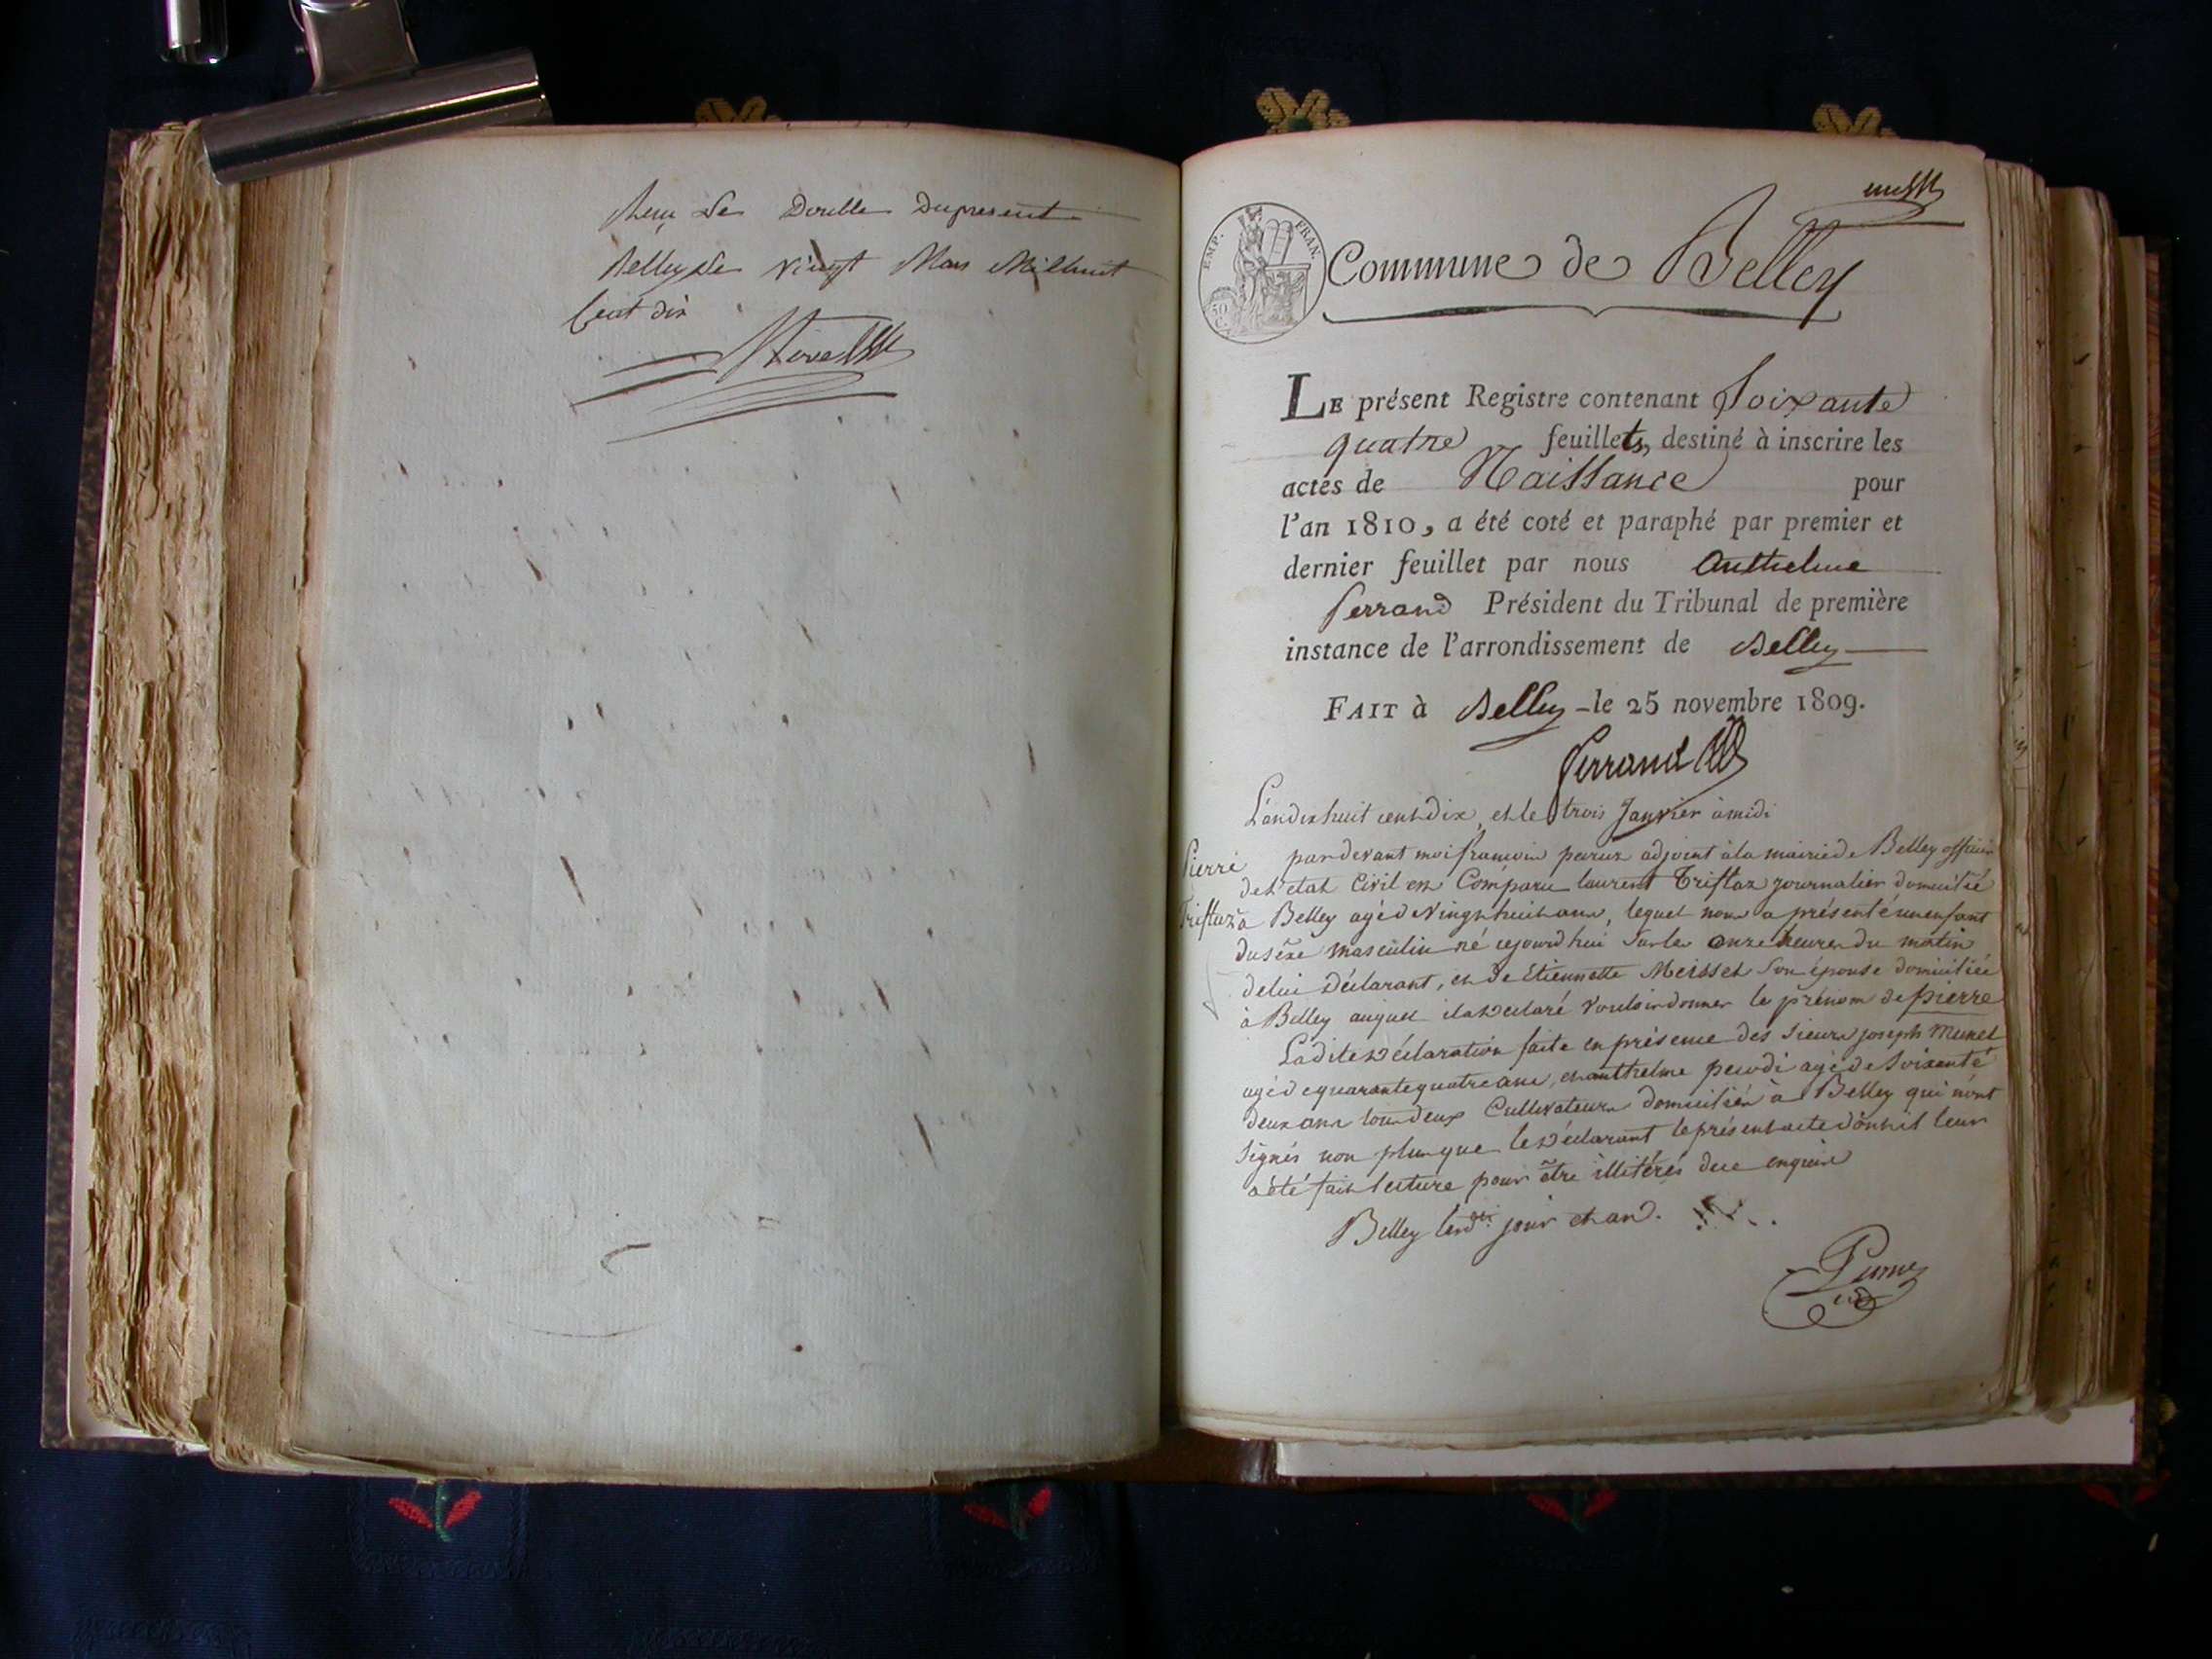 Reçu Le Double Du present
Belley Le vingt Mars Mil huit
Cent dix
EMP. FRAN.
50 C.
Commune de Belley
LE présent Registre contenant Soixante
quatre feuillets, destiné à inscrire les
actes de Naissance pour
l'an 1810, a été coté et paraphé par premier et
dernier feuillet par nous Anthelme
Perrand Président du Tribunal de première
instance de l'arrondissement de Belley
FAIT à Belley le 25 novembre 1809.
Perrand
L'an dix huit cent dix, et le trois Janvier à midi
Pierre
Triftaz
par devant moi françois adjoint à la mairie de Belley officier
de l'etat Civil est Comparu laurent Triftaz journalier domicilié
à Belley agé de vingt huit ans, lequel nous a présenté un enfant
du sèxe masculin né cejourd'hui sur les onze heures du matin
de lui Déclarant, et de Etiennette Meisset son épouse domiciliée
à Belley auquel il a declaré vouloir donner le prénom de pierre
Ladite Déclaration faite en présence des sieurs joseph Munet
agé de quarante quatre ans, et anthelme agé de soixante
deux ans tous deux Cultivateurs domiciliés à Belley qui n'ont
signés non plus que le Déclarant le présent acte dont il leur
a été fait lecture pour être illitérés de ce enquis
Belley les d. jour et an.